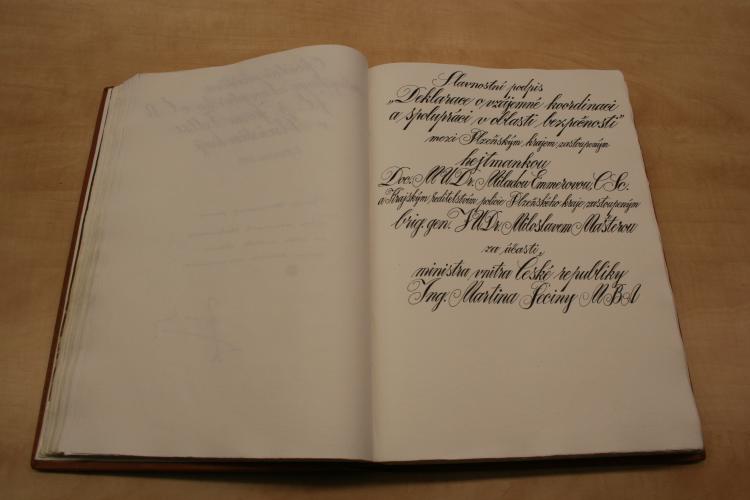 Slavnostní podpis
„Deklarace o vzájemné koordinaci
a spolupráci v oblasti bezpečnosti"
mezi Plzeňským krajem, zastoupeným
hejtmankou
Doc. MUDr. Miladou Emmerovou, CSc.
a Krajským ředitelstvím policie Plzeňského kraje, zastoupeným
brig. gen. JUDr. Miloslavem Mašterou
za účasti
ministra vnitra České republiky
Ing. Martina Peciny MBA